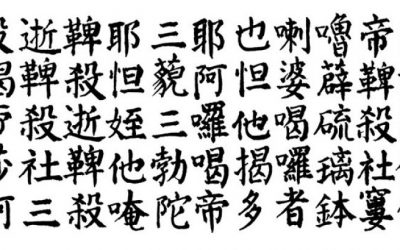 帝鞞殺社窶
嚕薜硫璃鉢
喇婆喝囉者
也怛他揭多
耶阿囉喝帝
三藐三勃陀
耶怛姪他唵
鞞殺逝鞞殺
逝鞞殺社三